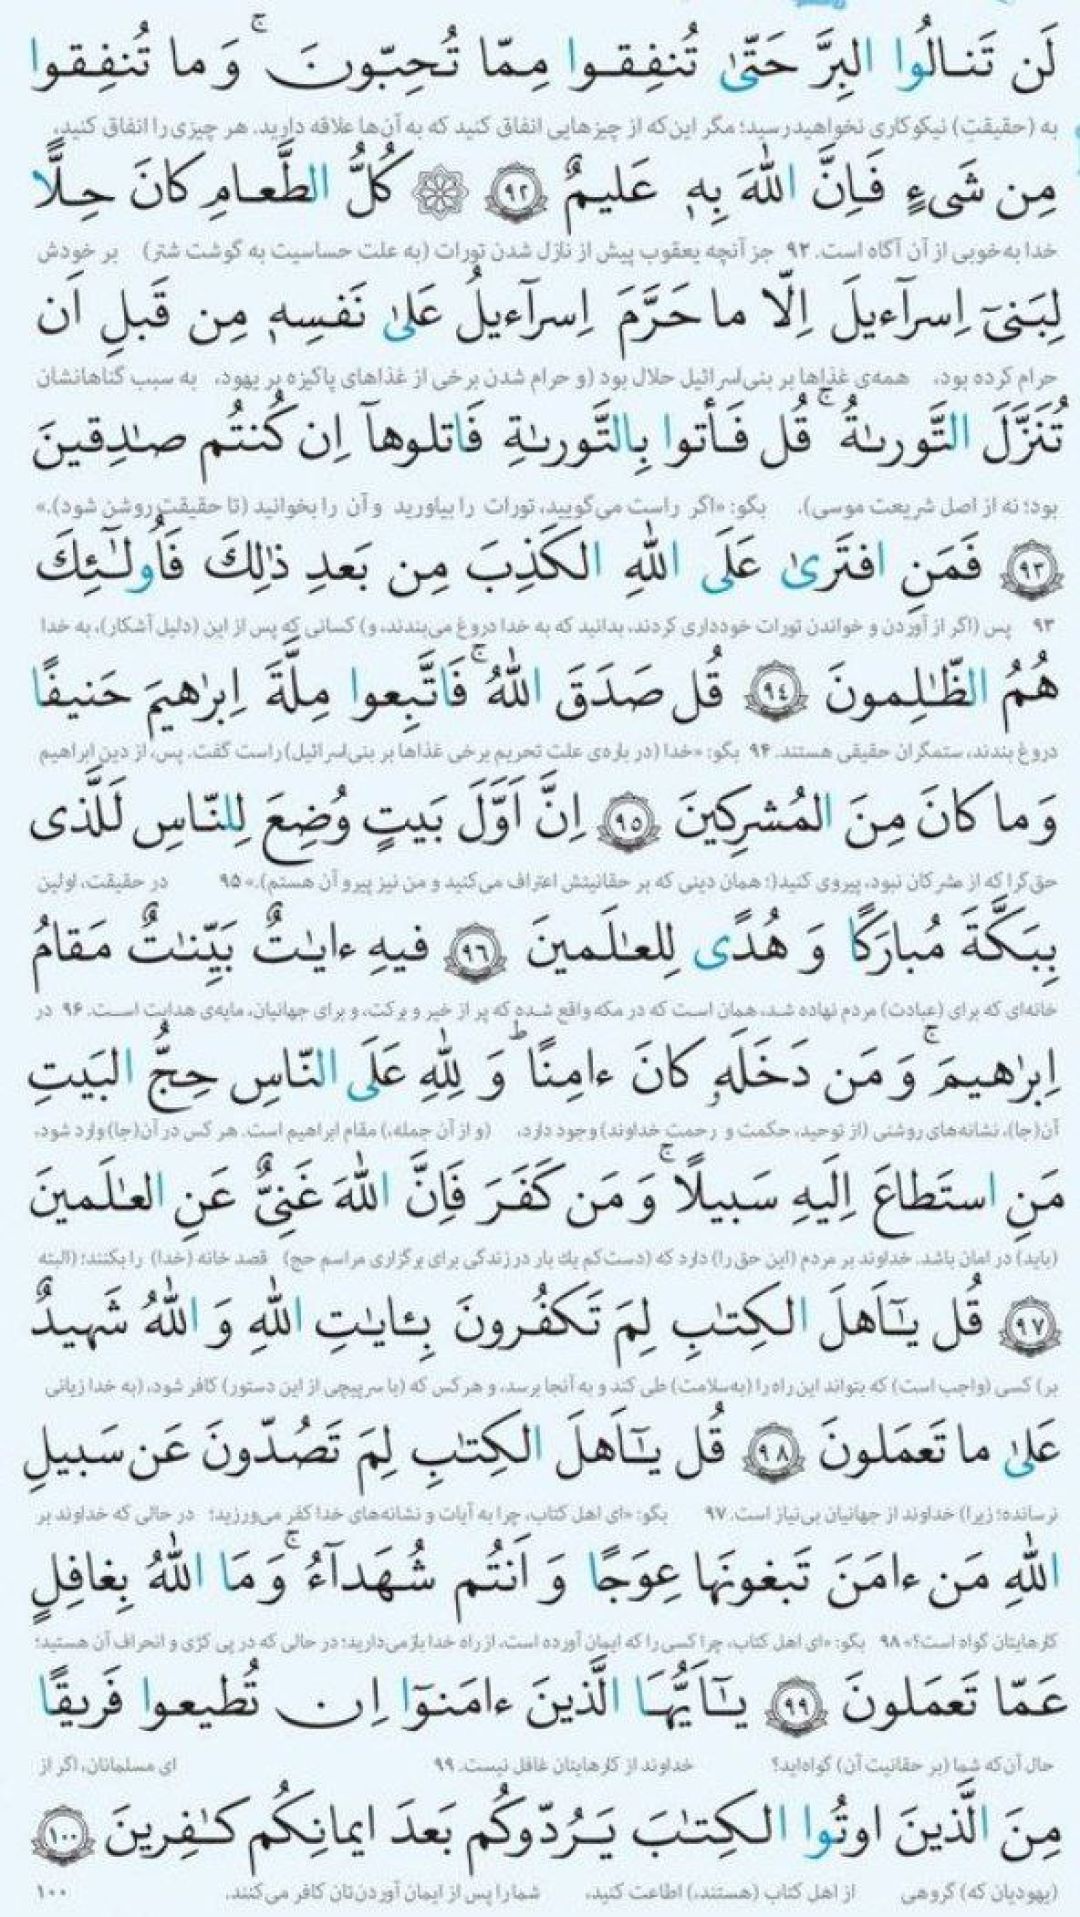 لَن تَنالُوا البِرَّ حَتّىٰ تُنفِقوا مِمّا تُحِبّونَ ۚ وَ ما تُنفِقوا
به (حقیقتِ) نیکوکاری نخواهیدرسید؛ مگر این‌که از چیزهایی انفاق کنید که به آن‌ها علاقه دارید. هر چیزی را انفاق کنید،
مِن شَیءٍ فَاِنَّ اللهَ بِهٖ عَلیمٌ ﴿٩٢﴾ ۞ کُلُّ الطَّعامِ کانَ حِلًّا
خدا به‌خوبی از آن آگاه است. ۹۲ جز آنچه یعقوب پیش از نازل شدن تورات (به علت حساسیت به گوشت شتر) بر خودش
لِبَنیٓ اِسرآءیلَ اِلّا ما حَرَّمَ اِسرآءیلُ عَلیٰ نَفسِهٖ مِن قَبلِ اَن
حرام کرده بود، همه‌ی غذاها بر بنی‌اسرائیل حلال بود (و حرام شدن برخی از غذاهای پاکیزه بر یهود، به سبب گناهانشان
تُنَزَّلَ التَّوریٰةُ ۚ قُل فَأتوا بِالتَّوریٰةِ فَاتلوهآ اِن کُنتُم صٰدِقینَ
بود؛ نه از اصل شریعت موسی). بگو: «اگر راست می‌گویید، تورات را بیاورید و آن را بخوانید (تا حقیقت روشن شود).»
﴿٩٣﴾ فَمَنِ افتَریٰ عَلَی اللهِ الکَذِبَ مِن بَعدِ ذٰلِكَ فَاُولٰٓئِكَ
۹۳ پس (اگر از آوردن و خواندن تورات خودداری کردند، بدانید که به خدا دروغ می‌بندند، و) کسانی که پس از این (دلیل آشکار)، به خدا
هُمُ الظّٰلِمونَ ﴿٩٤﴾ قُل صَدَقَ اللهُ ۚ فَاتَّبِعوا مِلَّةَ اِبرٰهیمَ حَنیفًا
دروغ بندند، ستمگران حقیقی هستند. ۹۴ بگو: «خدا (در باره‌ی علت تحریم برخی غذاها بر بنی‌اسرائیل) راست گفت. پس، از دین ابراهیم
وَ ما کانَ مِنَ المُشرِکینَ ﴿٩٥﴾ اِنَّ اَوَّلَ بَیتٍ وُضِعَ لِلنّاسِ لَلَّذی
حق‌گرا که از مشرکان نبود، پیروی کنید(؛ همان دینی که بر حقانیتش اعتراف می‌کنید و من نیز پیرو آن هستم).» ۹۵ در حقیقت، اولین
بِبَکَّةَ مُبارَکًا وَ هُدًی لِلعٰلَمینَ ﴿٩٦﴾ فیهِ ءایٰتٌ بَیِّنٰتٌ مَقامُ
خانه‌ای که برای (عبادت) مردم نهاده شد، همان است که در مکه واقع شده که پر از خیر و برکت، و برای جهانیان، مایه‌ی هدایت است. ۹۶ در
اِبرٰهیمَ ۚ وَ مَن دَخَلَهٗ کانَ ءامِنًا ؕ وَ لِلّٰهِ عَلَی النّاسِ حِجُّ البَیتِ
آن(جا)، نشانه‌های روشنی (از توحید، حکمت و رحمت خداوند) وجود دارد، (و از آن جمله،) مقام ابراهیم است. هر کس در آن(جا) وارد شود،
مَنِ استَطاعَ اِلَیهِ سَبیلًا ۚ وَ مَن کَفَرَ فَاِنَّ اللهَ غَنِیٌّ عَنِ العٰلَمینَ
(باید) در امان باشد. خداوند بر مردم (این حق را) دارد که (دست‌کم یك بار در زندگی برای برگزاری مراسم حج) قصد خانه (خدا) را بکنند؛ (البته
﴿٩٧﴾ قُل یٰٓاَهلَ الکِتٰبِ لِمَ تَکفُرونَ بِـٔایٰتِ اللهِ وَ اللهُ شَهیدٌ
بر) کسی (واجب است) که بتواند این راه را (به‌سلامت) طی کند و به آنجا برسد، و هر کس که (با سرپیچی از این دستور) کافر شود، (به خدا زیانی
عَلیٰ ما تَعمَلونَ ﴿٩٨﴾ قُل یٰٓاَهلَ الکِتٰبِ لِمَ تَصُدّونَ عَن سَبیلِ
نرسانده؛ زیرا) خداوند از جهانیان بی‌نیاز است. ۹۷ بگو: «ای اهل کتاب، چرا به آیات و نشانه‌های خدا کفر می‌ورزید؛ در حالی که خداوند بر
اللهِ مَن ءامَنَ تَبغونَها عِوَجًا وَ اَنتُم شُهَدآءُ ۚ وَ مَا اللهُ بِغافِلٍ
کارهایتان گواه است؟» ۹۸ بگو: «ای اهل کتاب، چرا کسی را که ایمان آورده است، از راه خدا بازمی‌دارید؛ در حالی که در پی کژی و انحراف آن هستید؛
عَمّا تَعمَلونَ ﴿٩٩﴾ یٰٓاَیُّهَا الَّذینَ ءامَنوٓا اِن تُطیعوا فَریقًا
حال آن‌که شما (بر حقانیت آن) گواه‌اید؟ خداوند از کارهایتان غافل نیست. ۹۹ ای مسلمانان، اگر از
مِنَ الَّذینَ اوتُوا الکِتٰبَ یَرُدّوکُم بَعدَ ایمانِکُم کٰفِرینَ ﴿١٠٠﴾
(یهودیان که) گروهی از اهل کتاب (هستند،) اطاعت کنید، شما را پس از ایمان آوردن‌تان کافر می‌کنند. ۱۰۰